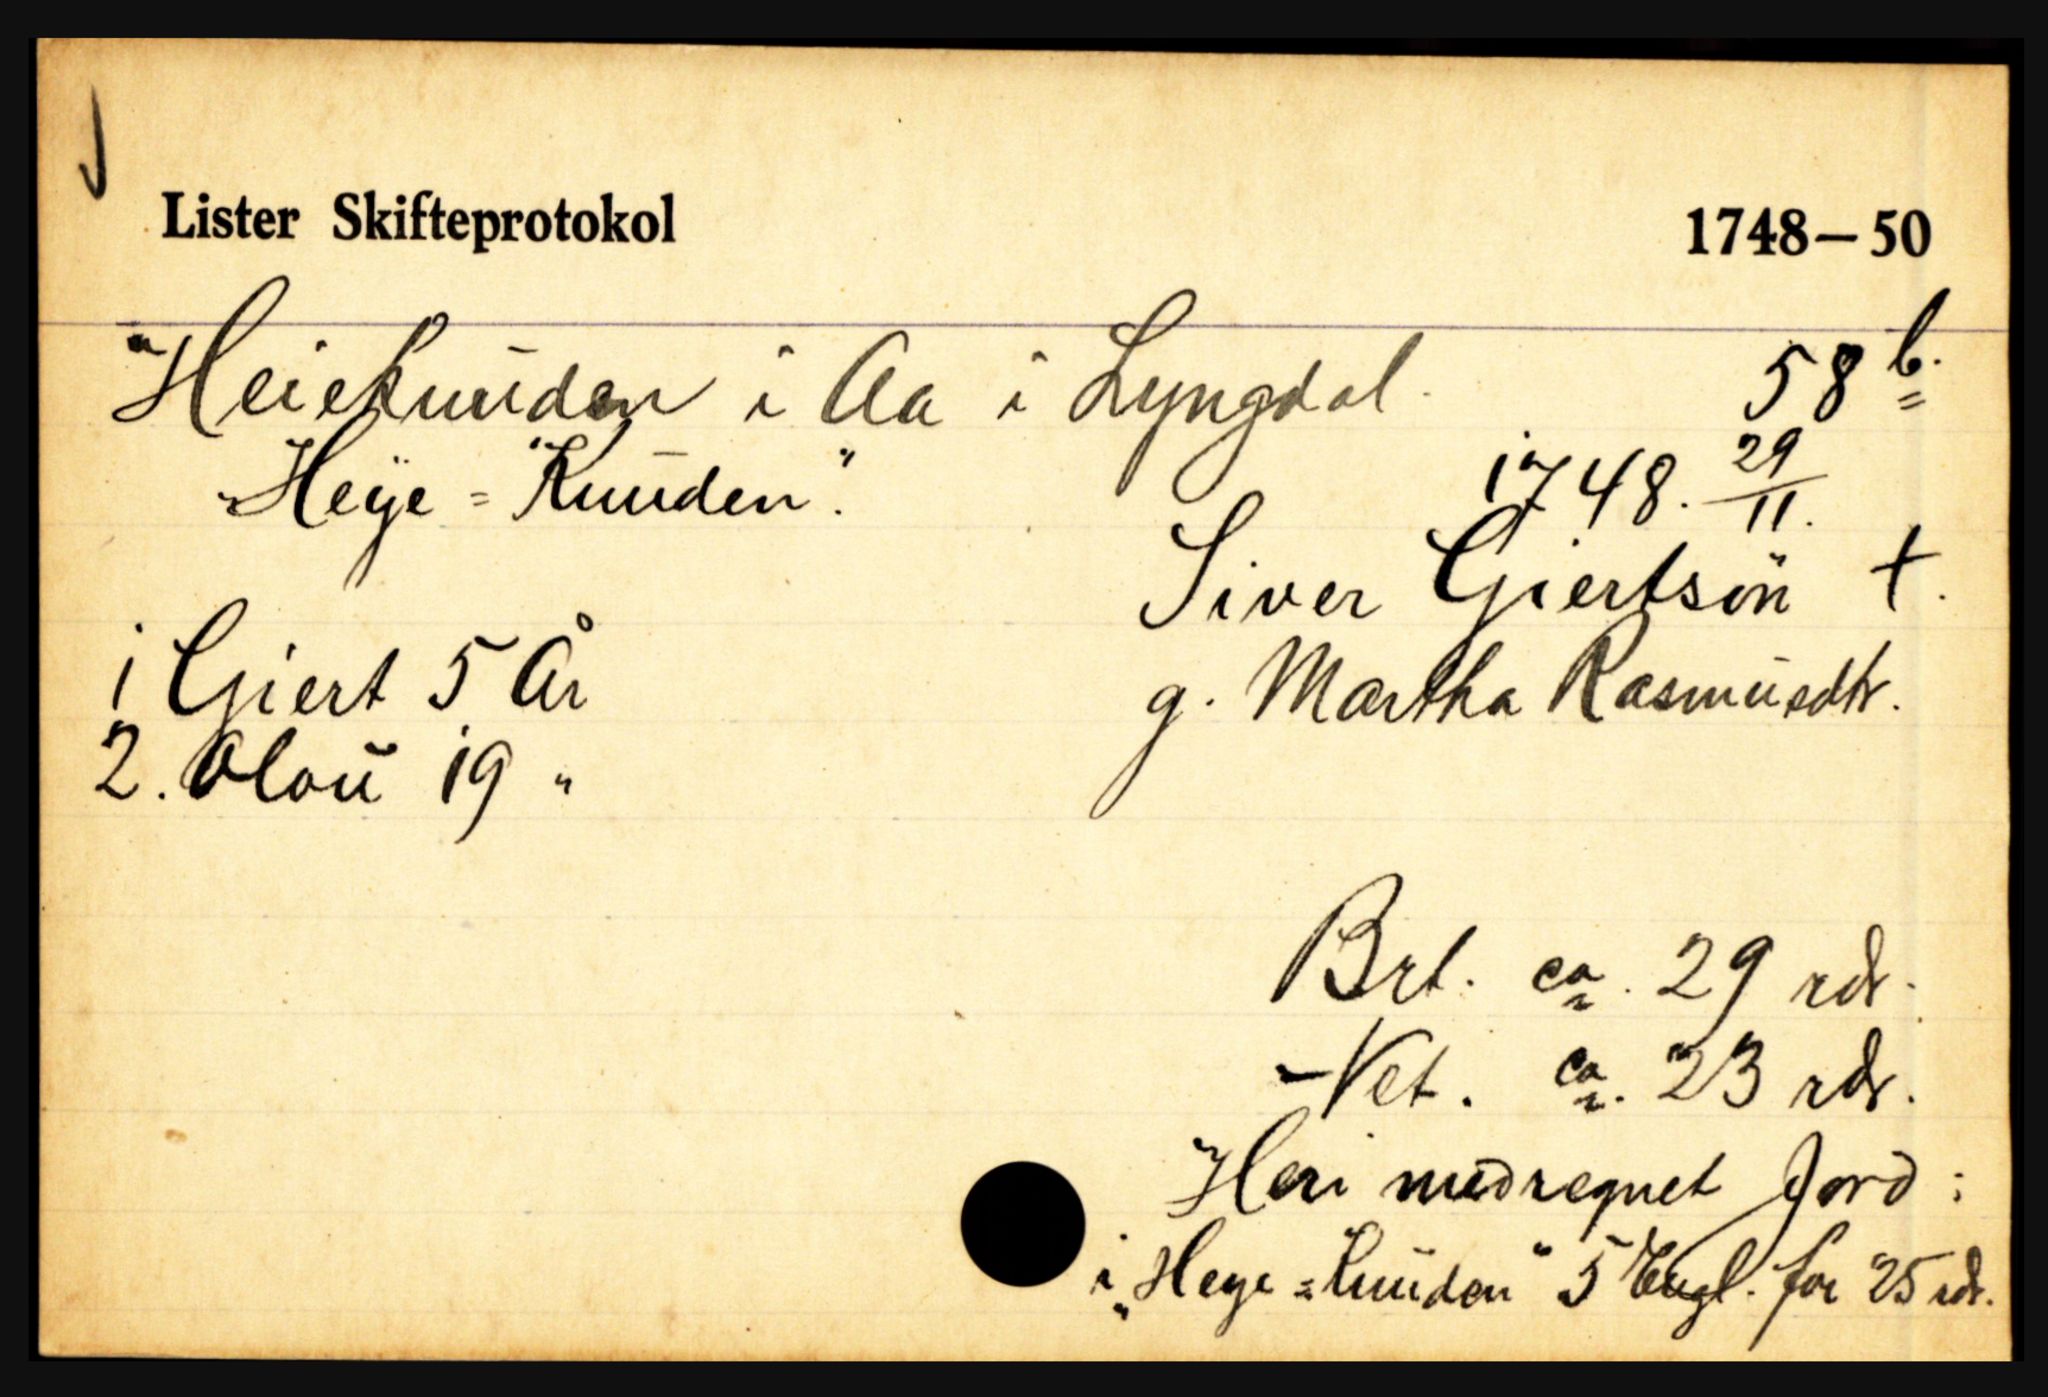 Lister Skifteprotokol 1748—50
"Heieknuden i Aa i Lyngdal. 58 b.
"Heÿe = "Knuden". 1748. 29/11.
Siver Giertsön †.
1 Giert 5 År g. Martha Rasmusdtr.
2. Olou 19 "
Brt. ca. 29 rdr.
Net. ca. 23 rdr.
Heri medregnet Jord:
i "Heye = Knuden" 5 Engl. for 25 rdr.